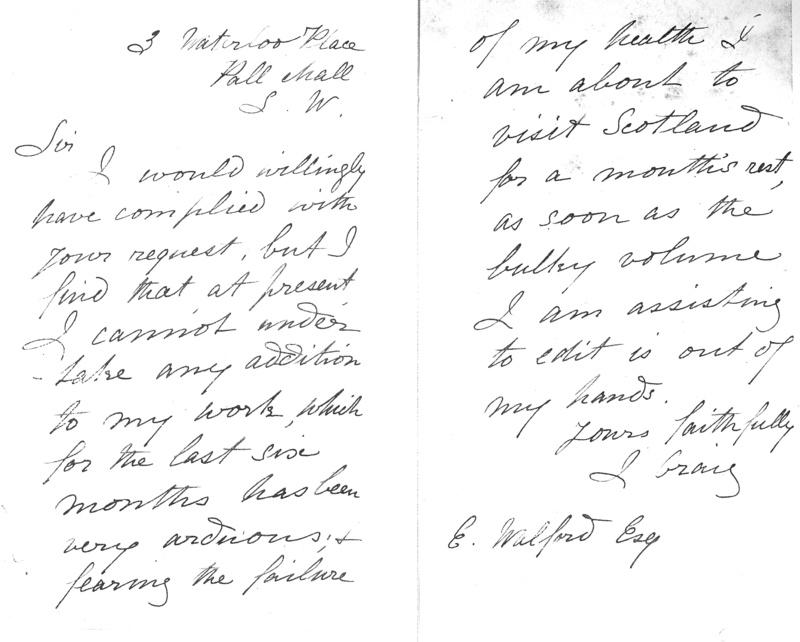 3 Waterloo Place
Pall Mall
S. W.
Sir
I would willingly
have complied with
your request, but I
find that at present
I cannot under
-take any addition
to my work, which
for the last six
months has been
very arduous; &
fearing the failure
of my health I
am about to
visit Scotland
for a month's rest,
as soon as the
bulky volume
I am assisting
to edit is out of
my hands.
Yours faithfully
I Craig
E. Walford Esq